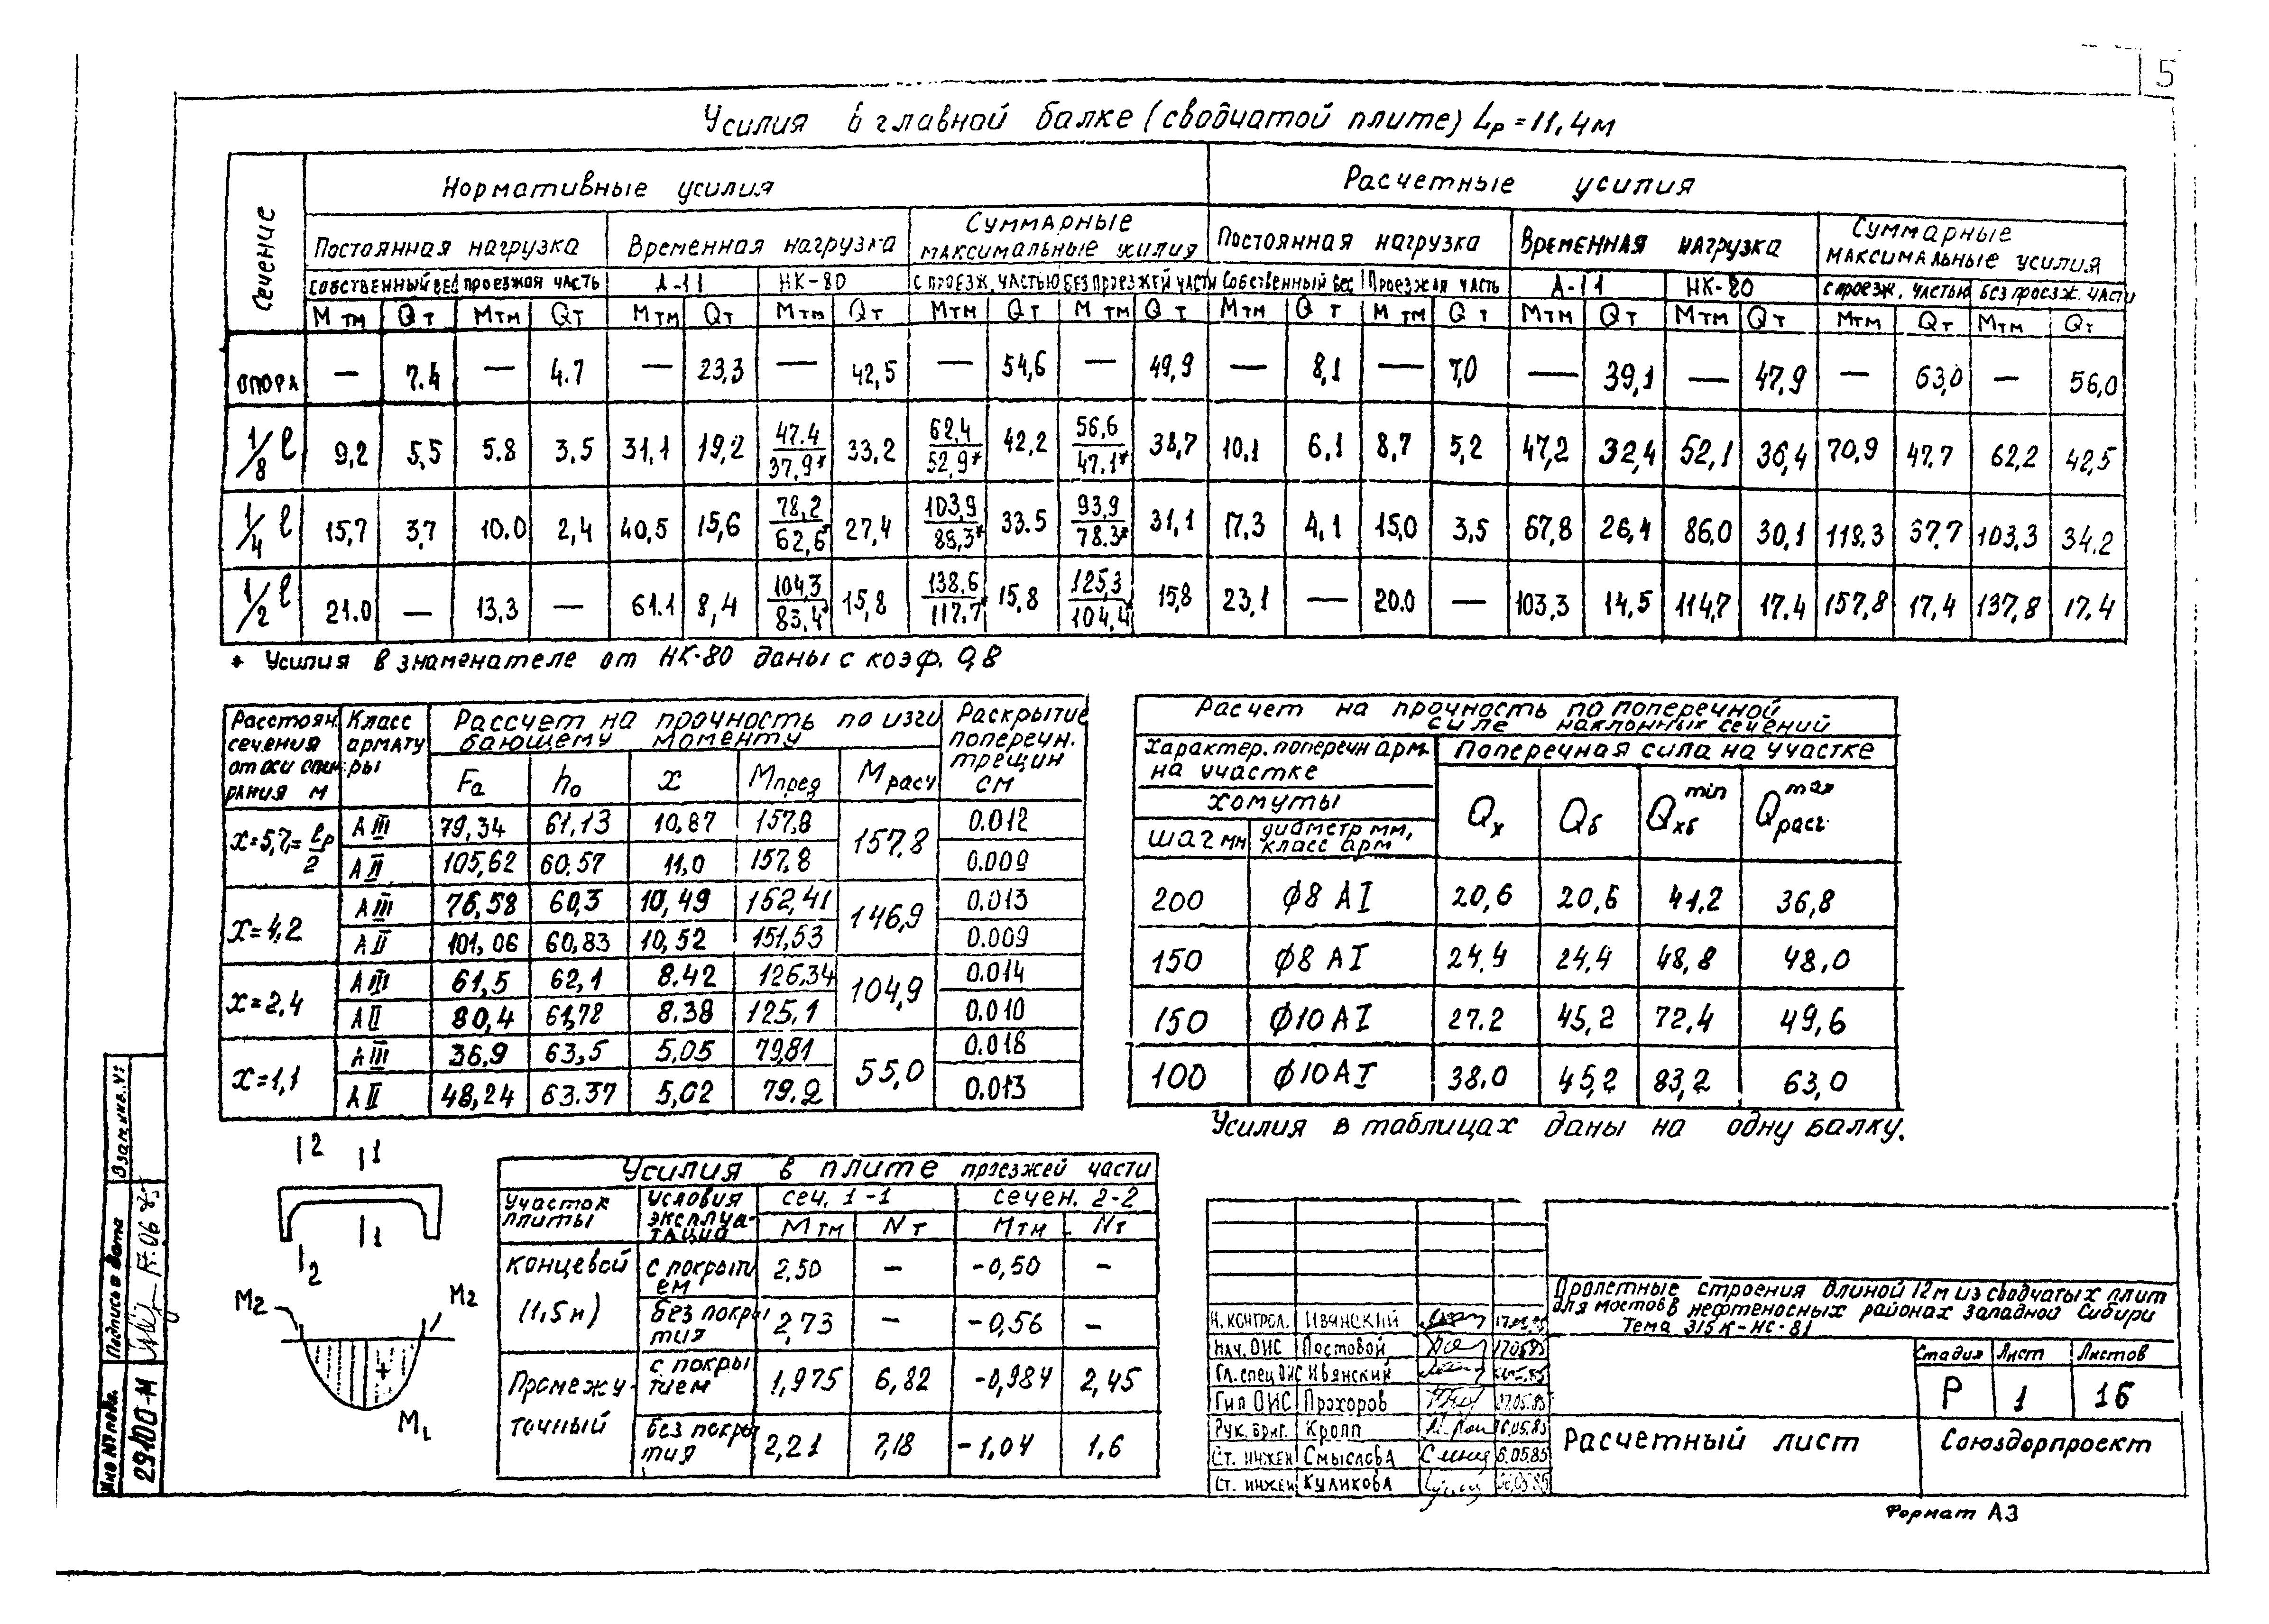 5
Усилия в главной балке (сводчатой плите) Lр = 11,4м
Сечение
Нормативные усилия
Расчетные усилия
Постоянная нагрузка Временная нагрузка Суммарные максимальные усилия Постоянная нагрузка Временная нагрузка Суммарные максимальные усилия
собственный вес проезжая часть А-11 НК-80 с проезж. частью без проезжей части Собственный вес Проезжая часть А-11 НК-80 с проезж. частью без проезж. части
М тм Q т Мтм Qт Мтм Qт Мтм Qт Мтм Qт М тм Q т Мтм Q т М тм Q т Мтм Qт Мтм Qт Мтм Qт Мтм Qт
опора — 7.4 — 4.7 — 23,3 — 42,5 — 54,6 — 49,9 — 8,1 — 7,0 — 39,1 — 47,9 — 63,0 — 56,0
1/8 l 9,2 5,5 5.8 3,5 31,1 19,2 47.4/37,9* 33,2 62,4/52,9* 42,2 56,6/47.1* 38,7 10,1 6,1 8,7 5,2 47,2 32,4 52,1 36,4 70,9 47,7 62,2 42,5
1/4 l 15,7 3,7 10.0 2,4 40,5 15,6 78,2/62,6* 27,4 103,9/88,3* 33.5 93,9/78.3* 31,1 17.3 4,1 15,0 3,5 67,8 26,4 86,0 30,1 118.3 37,7 103,3 34.2
1/2 l 21.0 — 13,3 — 61.1 8,4 104,3/83,4* 15,8 138.6/117.7* 15,8 125,3/104,4* 15,8 23,1 — 20.0 — 103,3 14,5 114,7 17.4 157,8 17,4 137,8 17.4
* Усилия в знаменателе от НК-80 даны с коэф. 0,8
Расстоян. сечения от оси опирания м
Класс арматуры
Рассчет на прочность по изгибающему моменту
Раскрытие поперечн. трещин см
Fа h₀ x Мпред Мрасч
x=5,7= lр/2 А III 79,34 61,13 10,87 157,8 157,8 0.012
А II 105,62 60.57 11,0 157,8 0.009
x=4,2 А III 76,58 60,3 10,49 152,41 146,9 0.013
А II 101,06 60,83 10,52 151,53 0.009
x=2,4 А III 61,5 62,1 8.42 126,34 104,9 0.014
А II 80,4 61,78 8.38 125,1 0.010
x=1,1 А III 36,9 63,5 5,05 79,81 55,0 0.018
А II 48,24 63.37 5,02 79.2 0.013
Расчет на прочность по поперечной силе наклонных сечений
Характер. поперечн арм. на участке
Поперечная сила на участке
хомуты
шаг мм диаметр мм, класс арм
Qх Qб Qхб min Qрасч max
200 ϕ8 АI 20,6 20,6 41,2 36,8
150 ϕ8 АI 24,4 24,4 48,8 48,0
150 ϕ10 АI 27.2 45,2 72,4 49,6
100 ϕ10АI 38.0 45,2 83,2 63,0
Усилия в таблицах даны на одну балку.
2 1
1
2
М2 М2
+
М1
Усилия в плите проезжей части
Участок плиты
условия эксплуатации
сеч. 1-1 сечен. 2-2
М тм N т Мтм Nт
концевой (1,5м) с покрытием 2,50 — -0,50 —
без покрытия 2,73 — -0,56 —
Промежуточный с покрытием 1,975 6,82 -0,984 2,45
без покрытия 2,21 7,18 -1,04 1,6
Н. контрол. Ивянский
Нач. ОИС Постовой 17.05.85
Гл. спец ОИС Ивянский
Гип ОИС Прохоров 17.05.85
Рук. бриг. Кропп 16.05.85
Ст. инжен Смыслова 16.05.85
Ст. инжен Куликова 16.05.85
Пролетные строения длиной 12м из сводчатых плит
для мостов в нефтеносных районах Западной Сибири
Тема 315К-НС-81
Стадия Лист Листов
Р 1 16
Расчетный лист
Союздорпроект
Формат А3
Взам.инв.№
Подпись и дата
Инв № подл.
29100-М